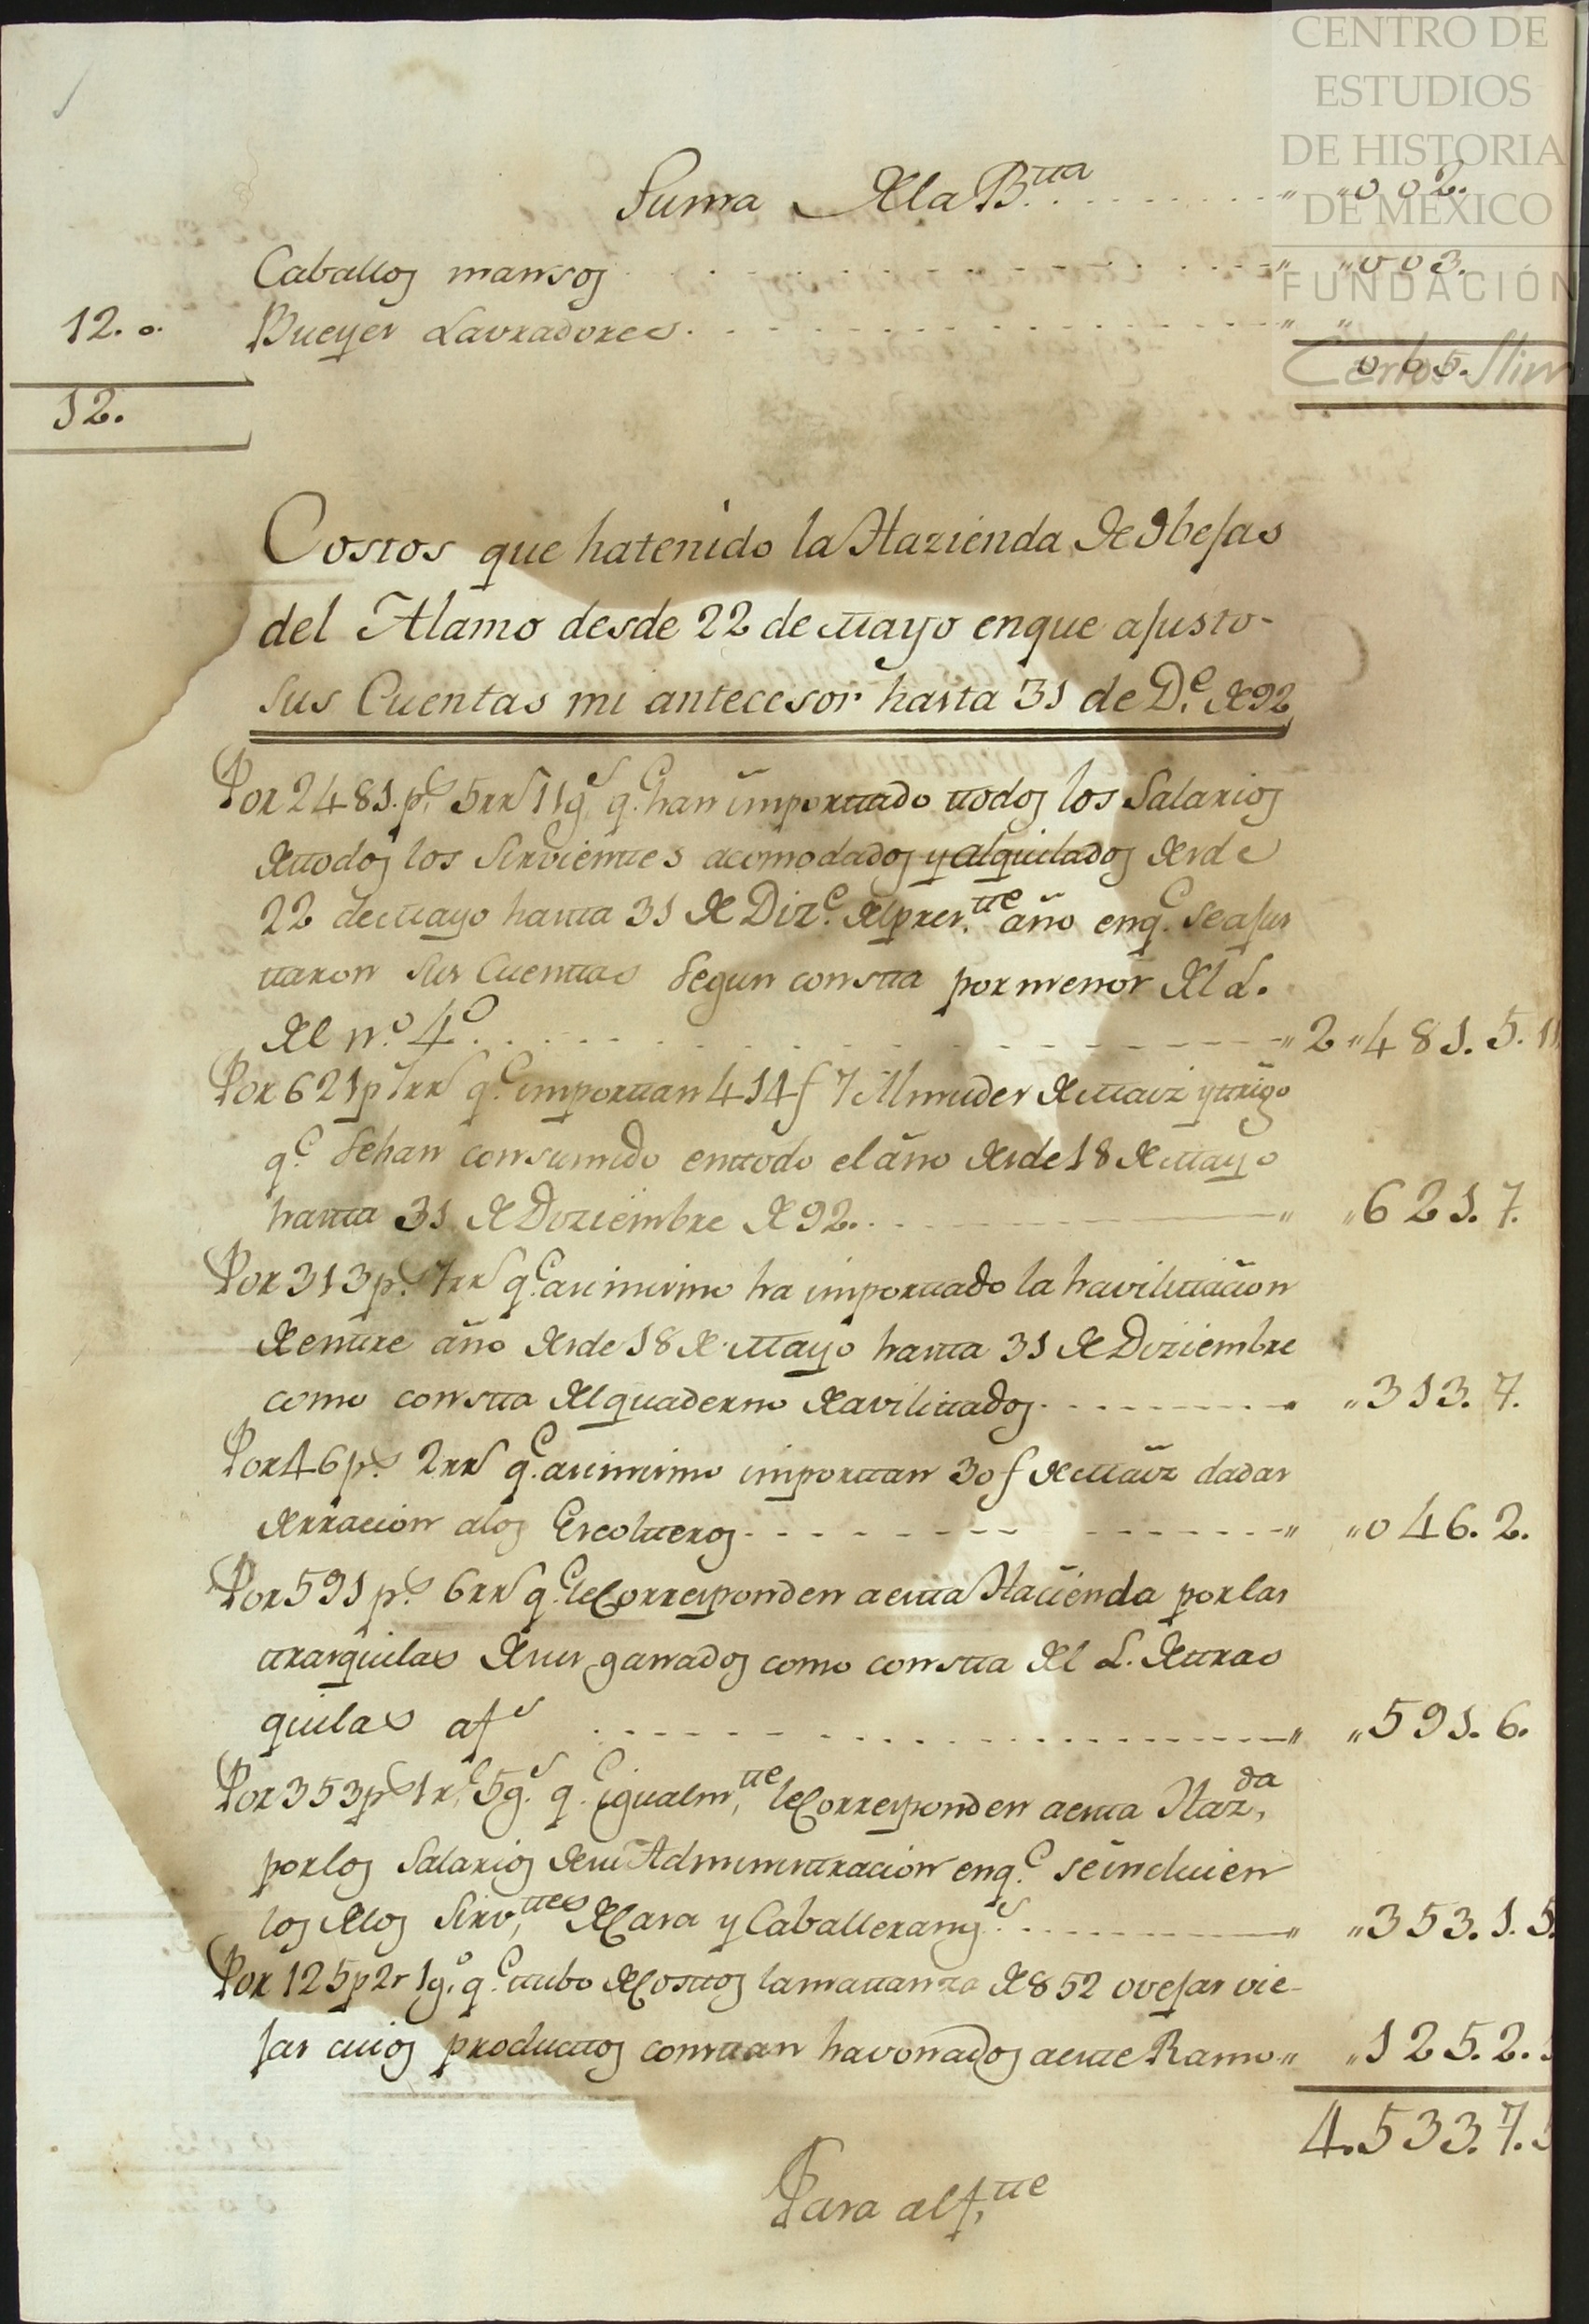 CENTRO DE
ESTUDIOS
DE HISTORIA
DE MÉXICO
FUNDACIÓN
Carlos Slim
Suma de la B.tta " "002.
Caballos mansos " "003.
12. o. Bueyes Lavradores. " "
12. 005.
Costos que ha tenido la Hazienda de Obejas
del Alamo desde 22 de Mayo en que ajusto-
sus Cuentas mi antecesor hasta 31 de D.e de 92
Por 2481. p.s 5 rr.s 11 g.s q.e han importado todos los Salarios
de todos los Sirvientes acomodados y alquilados desde
22 de Mayo hasta 31 de Diz.e del pres.te año en q.e se ajus
taron sus Cuentas segun consta por menor del L.
del n.o 4.o " 2"481.5.11
Por 621 p.s 7 rr.s q.e importan 414 f 7 Almudes de Maiz y trigo
q.e se han consumido en todo el año desde 18 de Mayo
hasta 31 de Diziembre de 92. " "621.7.
Por 313 p.s 7 rr.s q.e asimismo ha importado la havilitacion
de entre año desde 18 de Mayo hasta 31 de Diziembre
como consta del quaderno de avilitados. "313.7.
Por 46 p.s 2 rr.s q.e asimismo importan 30 f de Maiz dadas
de rracion a los Escolteros " "046.2.
Por 591 p.s 6 rr.s q.e le Corresponden a esta Hacienda por las
trasquilas de sus ganados como consta del L. de tras
quilas a f.s " "591.6.
Por 353 p.s 1 r.l 5 g.s q.e igualm.te le Corresponden a esta Haz.da
por los Salarios de su Administracion en q.e se incluien
los de los Sirv.tes de Casa y Caballerang.s " "353.1.5.
Por 125 p 2 r 1 g.o q.e tubo de Costos la matanza de 852 ovejas vie-
jas cuios productos constan havonados a este Ramo " "125.2.
4.533.7.5
Para al f.te